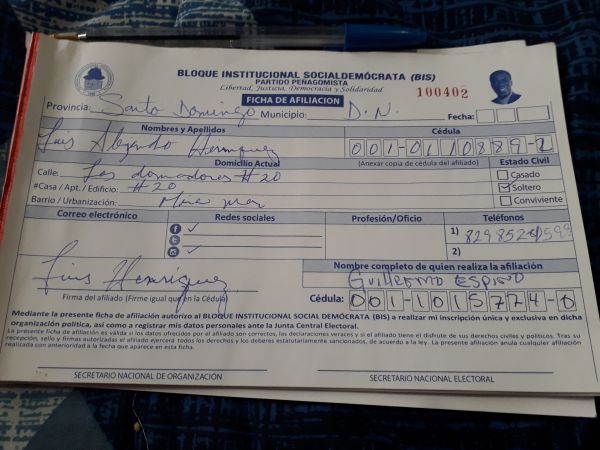 BLOQUE INSTITUCIONAL SOCIALDEMÓCRATA (BIS)
PARTIDO PEÑAGOMISTA
Libertad, Justicia, Democracia y Solidaridad
100402
FICHA DE AFILIACION
Provincia: Santo Domingo Municipio: D.N. Fecha:
Nombres y Apellidos Cédula
Luis Alejandro Henriquez 001-0110889-2
Domicilio Actual (Anexar copia de cédula del afiliado) Estado Civil
Calle: Los domadores #20 Casado
#Casa / Apt. / Edificio: #20 Soltero
Barrio / Urbanización: Conviviente
Correo electrónico Redes sociales Profesión/Oficio Teléfonos
1)
2)
Luis Henríquez
Nombre completo de quien realiza la afiliación
Guillermo Espino
Firma del afiliado (Firme igual que en la Cédula) Cédula: 001-1015774-0
Mediante la presente ficha de afiliación autorizo al BLOQUE INSTITUCIONAL SOCIAL DEMÓCRATA (BIS) a realizar mi inscripción única y exclusiva en dicha
organización política, así como a registrar mis datos personales ante la Junta Central Electoral.
La presente ficha de afiliación es válida si los datos ofrecidos por el afiliado son correctos, las declaraciones veraces y si el afiliado tiene el disfrute de sus derechos civiles y políticos. Tras su
recepción, sello y firmas autorizadas el afiliado ejercerá todos los derechos y los deberes estatutariamente sancionados, de acuerdo a la ley. La presente afiliación anula cualquier afiliación
realizada con anterioridad a la fecha que aparece en esta ficha.
SECRETARIO NACIONAL DE ORGANIZACIÓN SECRETARIO NACIONAL ELECTORAL